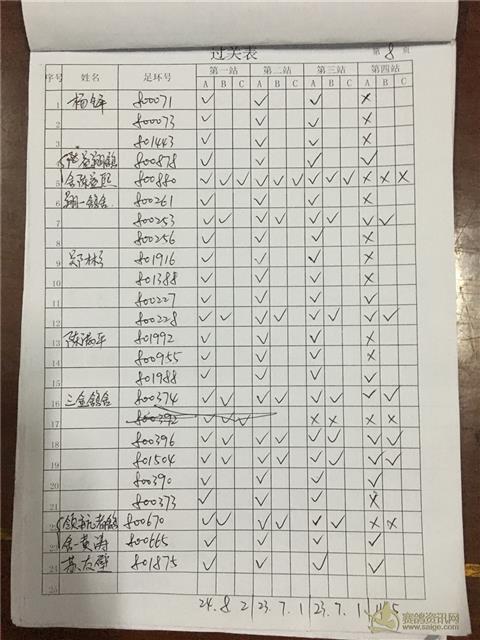 过关表 第 8 页
序号 姓名 足环号 第一站 第二站 第三站 第四站
A B C A B C A B C A B C
1 杨锋 800071 ✓ ✓ ✓ ×
2 800073 ✓ ✓ ✓ ×
3 801443 ✓ ✓ ✓ ×
4 800878 ✓ ✓ ✓ ✓
5 800880 ✓ ✓ ✓ ✓ ✓ ✓ ✓ ✓ ✓ × × ×
6 翔一鸽舍 800261 ✓ ✓ ✓ ×
7 800253 ✓ ✓ ✓ ✓ ✓ ✓ ✓ ✓
8 800256 ✓ ✓ ✓ ×
9 801916 ✓ ✓ ✓ ×
10 801388 ✓ ✓ ✓ ×
11 800227 ✓ ✓ ✓ ✓
12 800228 ✓ ✓ ✓ ✓ ✓ ✓ ✓ ✓
13 801992 ✓ ✓ ✓ ×
14 800955 ✓ ✓ ✓ ×
15 801988 ✓ ✓ ✓ ✓
16 三金鸽舍 800374 ✓ ✓ ✓ ✓ ✓ ✓ ✓ ✓
17 800392 ✓ ✓ ✓ × × × ×
18 800396 ✓ ✓ ✓ ✓ ✓ ✓ ✓ ✓
19 801504 ✓ ✓ ✓ ✓ ✓ ✓ ✓ ✓
20 800390 ✓ ✓ ✓ ✓
21 800373 ✓ ✓ ✓ ×
22 领航者鸽 800670 ✓ ✓ ✓ ✓ ✓ ✓ × ×
23 舍-黄涛 800665 ✓ ✓ ✓ ✓
24 苏友壁 801875 ✓ ✓ ✓ ✓
25
24. 8. 2 23. 7. 1 23. 7. 1 14. 5
赛鸽资讯网
www.saige.com